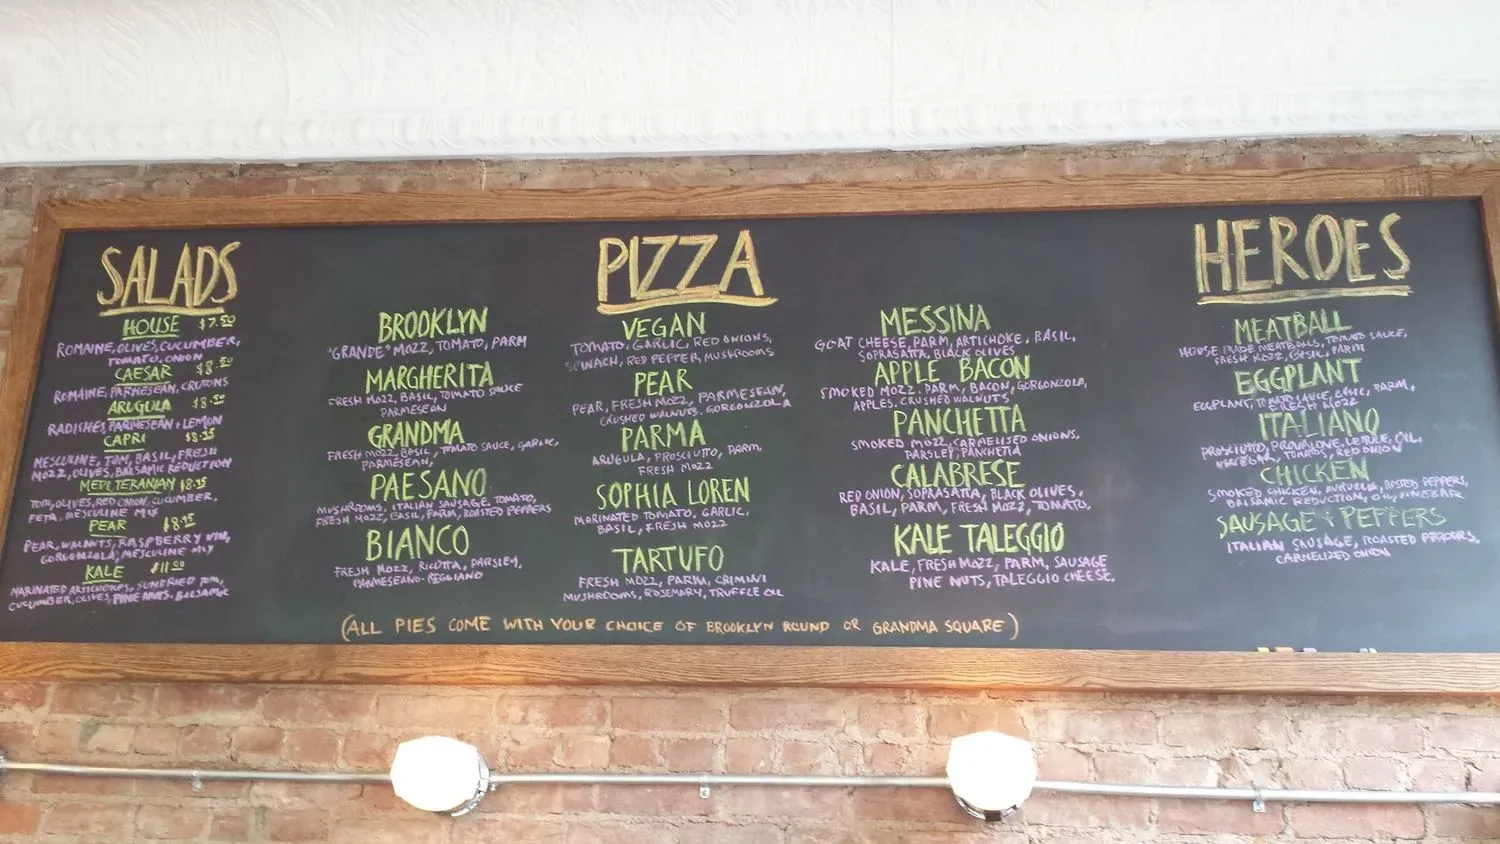 SALADS
HOUSE $7.50
ROMAINE, OLIVES, CUCUMBER,
TOMATO, ONION
CAESAR $8.50
ROMAINE, PARMESEAN, CRUTONS
ARUGULA $8.50
RADISHES, PARMESEAN + LEMON
CAPRI
MESCULINE, TOM, BASIL, FRESH
MOZZ, OLIVES, BALSAMIC REDUCTION
MEDITERANIAN
TOM, OLIVES, RED ONION, CUCUMBER,
FETA, MESCULINE MIX
PEAR
PEAR, WALNUTS, RASPBERRY VIN,
GORGONZOLA, MESCULINE
KALE $11.00
MARINATED ARTICHOKES, SUNDRIED TOM,
CUCUMBER, OLIVES, PINE NUTS, BALSAMIC
PIZZA
BROOKLYN
"GRANDE" MOZZ, TOMATO, PARM
MARGHERITA
FRESH MOZZ, BASIL, TOMATO SAUCE
PARMESEAN
GRANDMA
FRESH MOZZ, BASIL, TOMATO SAUCE, GARLIC,
PARMESEAN,
PAESANO
MUSHROOMS, ITALIAN SAUSAGE, TOMATO,
FRESH MOZZ, BASIL, PARM, ROASTED PEPPERS
BIANCO
FRESH MOZZ, RICOTTA, PARSLEY,
PARMESEANO-REGGIANO
VEGAN
TOMATO, GARLIC, RED ONIONS,
SPINACH, RED PEPPER, MUSHROOMS
PEAR
PEAR, FRESH MOZZ, PARMESEAN,
CRUSHED WALNUTS, GORGONZOLA
PARMA
ARUGULA, PROSCIUTTO, PARM,
FRESH MOZZ
SOPHIA LOREN
MARINATED TOMATO, GARLIC,
BASIL, FRESH MOZZ
TARTUFO
FRESH MOZZ, PARM, CRIMINI
MUSHROOMS, ROSEMARY, TRUFFLE OIL
MESSINA
GOAT CHEESE, PARM, ARTICHOKE, BASIL,
SOPRASATTA, BLACK OLIVES
APPLE BACON
SMOKED MOZZ, PARM, BACON, GORGONZOLA,
APPLES, CRUSHED WALNUTS
PANCHETTA
SMOKED MOZZ, CARMELISED ONIONS,
PARSLEY, PANCHETTA
CALABRESE
RED ONION, SOPRASATTA, BLACK OLIVES,
BASIL, PARM, FRESH MOZZ, TOMATO,
KALE TALEGGIO
KALE, FRESH MOZZ, PARM, SAUSAGE
PINE NUTS, TALEGGIO CHEESE,
(ALL PIES COME WITH YOUR CHOICE OF BROOKLYN ROUND OR GRANDMA SQUARE)
HEROES
MEATBALL
HOUSE MADE MEATBALLS, TOMATO SAUCE,
FRESH MOZZ, BASIL, PARM
EGGPLANT
EGGPLANT, TOMATO SAUCE, BASIL, PARM,
FRESH MOZZ
ITALIANO
PROSIUTTO, PROVALONE, LETTUCE, OIL,
VINEGAR, TOMATO, RED ONION
CHICKEN
SMOKED CHICKEN, ARUGULA, ROASTED PEPPERS,
BALSAMIC REDUCTION, OIL, VINEGAR
SAUSAGE + PEPPERS
ITALIAN SAUSAGE, ROASTED PEPPERS,
CARMELIZED ONION